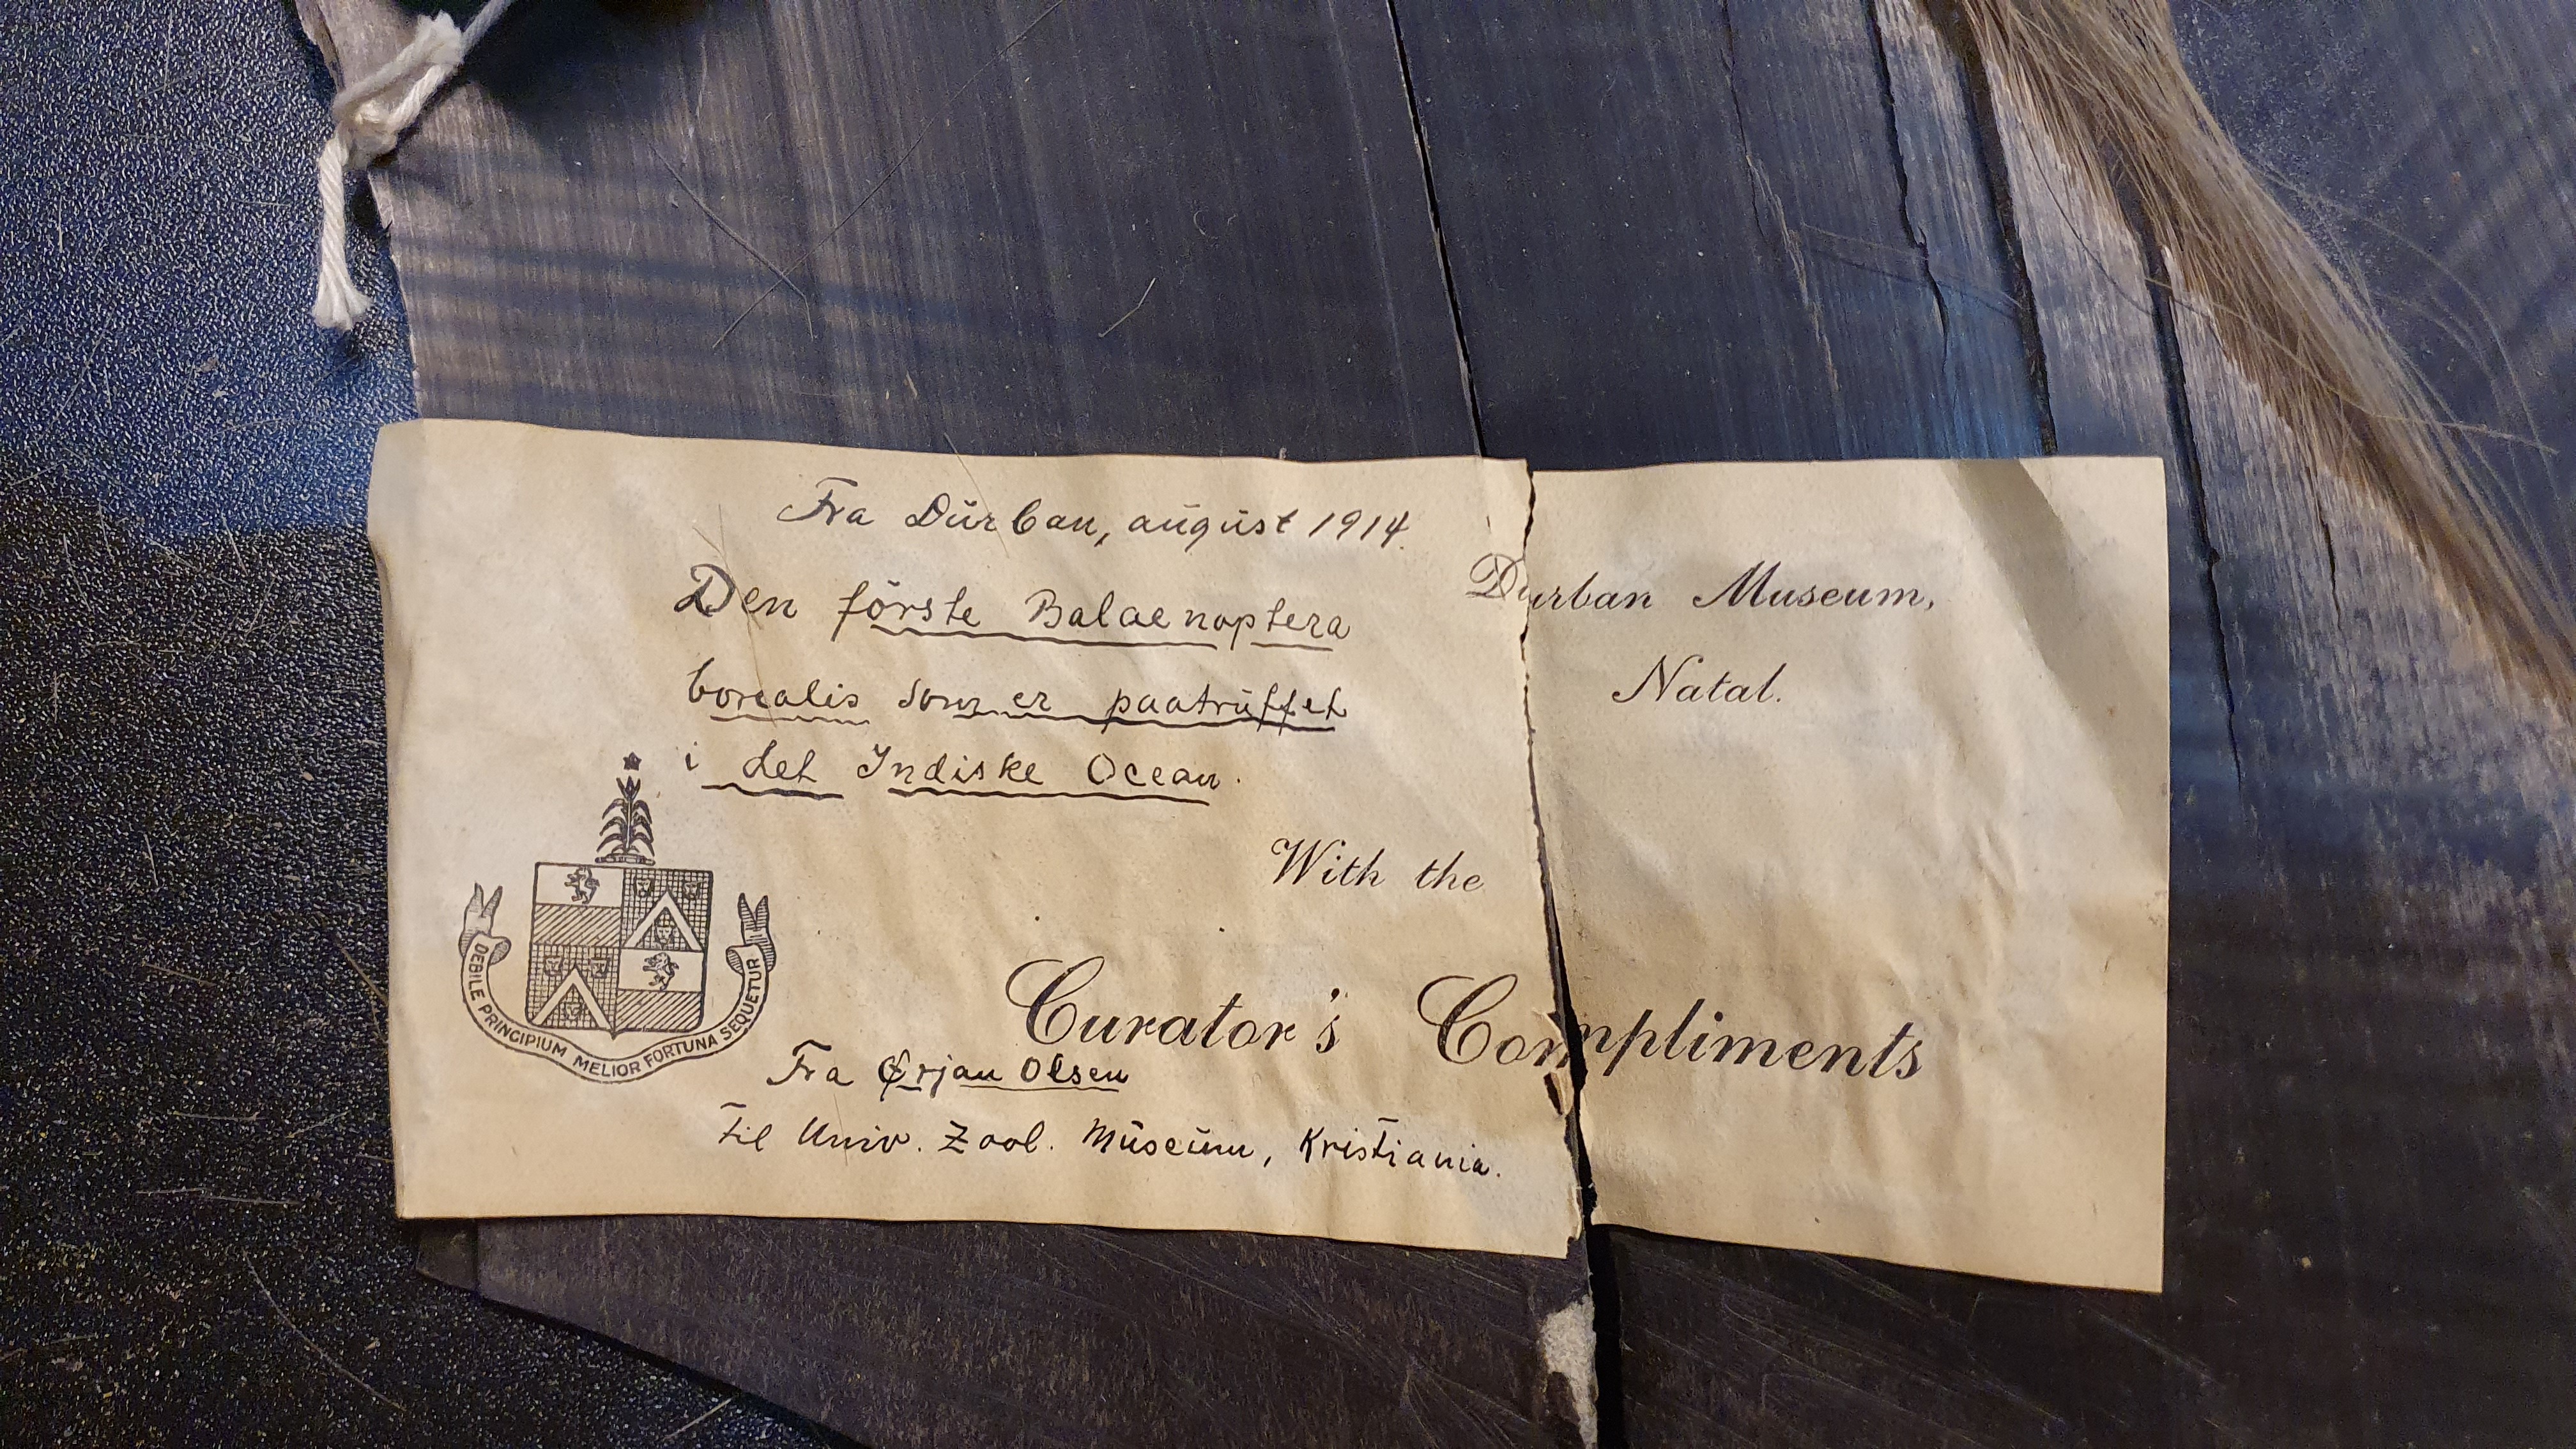 Fra Dŭrban, aŭgŭst 1914.
Den förste Balaenoptera
borealis som er paatrŭffet
i det Indiske Ocean.
Durban Museum,
Natal.
With the
Curator's Compliments
DEBILE PRINCIPIUM MELIOR FORTUNA SEQUETUR
Fra Ørjan Olsen
Til Univ. Zool. Mŭseŭm, Kristiania.